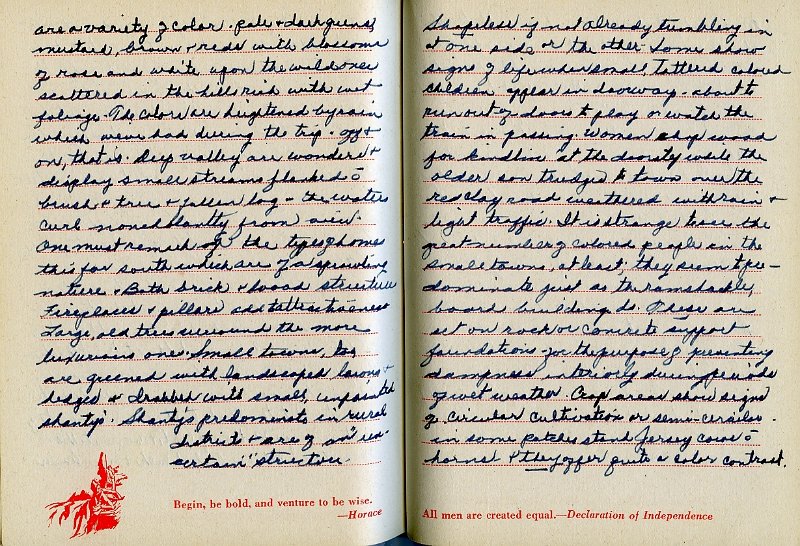 are a variety of color. pale & dark greens,
mustard, brown & reds with blossoms
of rose and white upon the wild ones
scattered in the hills rich with wet
foliage. The colors are heightened by rain
which weve had during the trip - off &
on, that is. Deep valley are wonders &
display small streams flanked c̄
brush & tree & fallen log - the waters
curl nonchalantly from view.
One must remark of the types of homes
this far south which are of a sprawling
nature & Both brick & wood structure
Fireplaces & pillars add attractiveness
Large, old trees surround the more
luxurians ones. Small towns, too
are greened with landscaped lawns &
hedges & drabbed with small, unpainted
shanty's. Shanty's predominate in rural
district & are of an "un-
certain" structure.
Begin, be bold, and venture to be wise.
—Horace
Shapeless if not already tumbling in
at one side or the other. Some show
signs of life when small, tattered colored
children appear in doorway - about to
run out of doors to play or watch the
train in passing. Women chop wood
for kindlin' at the doorsty while the
older son trudges to town over the
red clay road weathered with rain &
light traffic. It is strange to see the
great number of colored people in the
small towns, at least, they seem to pre-
dominate just as the ramshackle,
board building do. These are
set on rock or concrete support
foundations for the purpose of preventing
dampness interiorly during periods
of wet weather. Crop areas show signs
of circular cultivation or semi-circular -
in some patches stand Jersey cows c̄
horns & they offer quite a color contrast.
All men are created equal.—Declaration of Independence